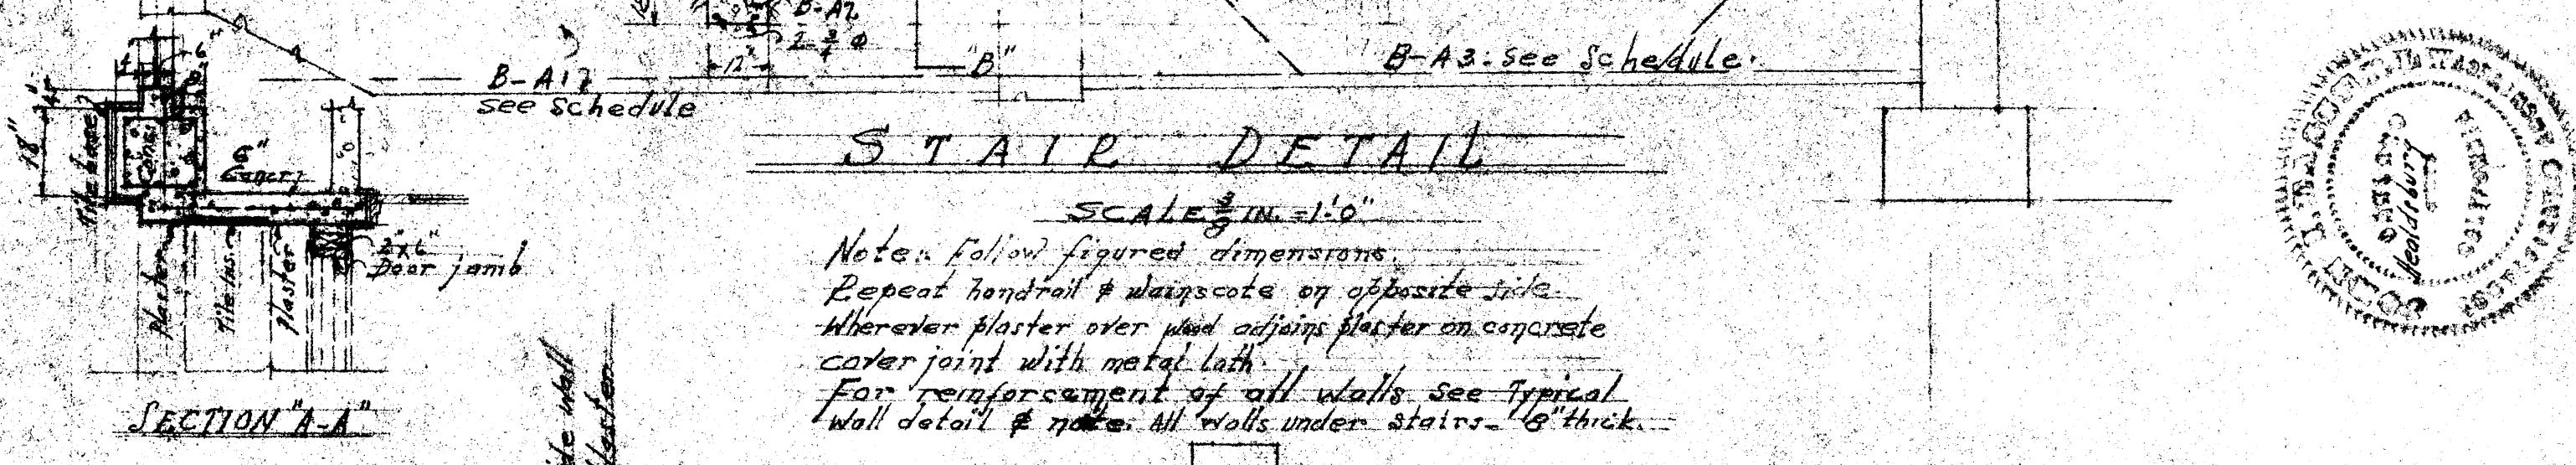 B-A2
2-3/4 ø
12"
"B"
B-A3: See Schedule.
B-A17
see schedule
6"
4
18"
Tile base
Conc.
6"
Concr.
2"x6"
Door jamb
Plaster
Tile Ins.
Plaster
SECTION "A-A"
STAIR DETAIL
SCALE 3/8 IN. = 1'-0"
Note: Follow figured dimensions.
Repeat handrail & Wainscote on opposite side.
Wherever plaster over wood adjoins plaster on concrete
cover joint with metal lath.
For reinforcement of all walls see Typical
Wall detail & note. All walls under stairs - 8" thick.
wall
Healdsburg